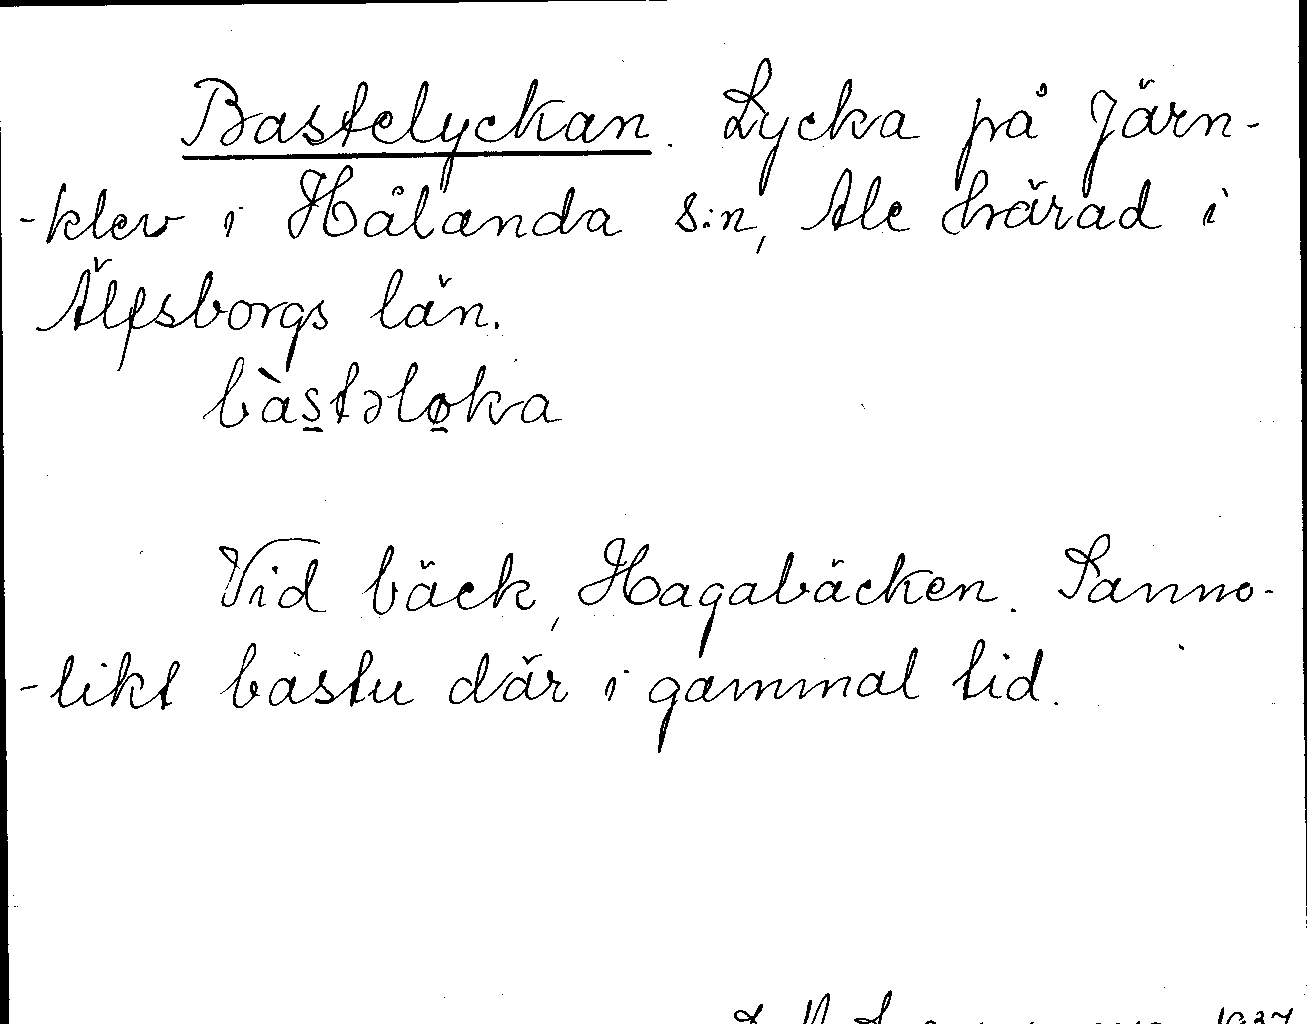 Bastelyckan. Lycka på Järn-
-klev i Hålanda s:n, Ale härad i
Älfsborgs län.
bàs̲təlø̲ka
Vid bäck, Hagabäcken. Sanno-
-likt bastu där i gammal tid.
1937